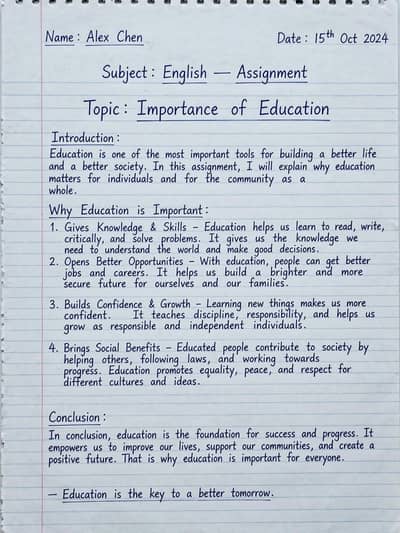 Name : Alex Chen
Date : 15th Oct 2024
Subject : English — Assignment
Topic : Importance of Education
Introduction :
Education is one of the most important tools for building a better life
and a better society. In this assignment, I will explain why education
matters for individuals and for the community as a
whole.
Why Education is Important :
1. Gives Knowledge & Skills – Education helps us learn to read, write,
critically, and solve problems. It gives us the knowledge we
need to understand the world and make good decisions.
2. Opens Better Opportunities – With education, people can get better
jobs and careers. It helps us build a brighter and more
secure future for ourselves and our families.
3. Builds Confidence & Growth – Learning new things makes us more
confident. It teaches discipline, responsibility, and helps us
grow as responsible and independent individuals.
4. Brings Social Benefits – Educated people contribute to society by
helping others, following laws, and working towards
progress. Education promotes equality, peace, and respect for
different cultures and ideas.
Conclusion :
In conclusion, education is the foundation for success and progress. It
empowers us to improve our lives, support our communities, and create a
positive future. That is why education is important for everyone.
— Education is the key to a better tomorrow.